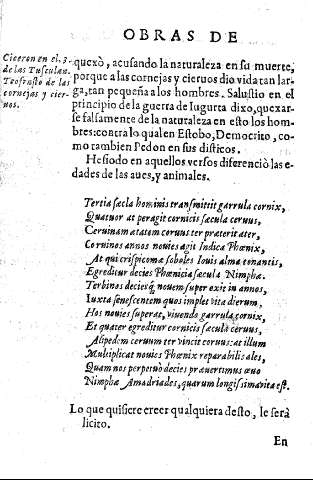 OBRAS DE
Ciceron en el. 3.
de las Tusculan.
Teofrasto de las
cornejas y cier-
uos.
quexò, acusando la naturaleza en su muerte,
porque a las cornejas y cieruos dio vida tan lar-
ga, tan pequeña a los hombres. Salustio en el
principio de la guerra de Iugurta dixo, quexar-
se falsamente de la naturaleza en esto los hom-
bres: contra lo qual en Estobo, Democrito, co-
mo tambien Pedon en sus disticos.
Hesiodo en aquellos versos diferenciò las e-
dades de las aues, y animales.
Tertia sæcla hominis transmittit garrula cornix,
Quatuor at peragit cornicis sæcula ceruus,
Ceruinam ætatem coruus ter præterit ater,
Coruinos annos nouies agit Indica Phœnix,
At qui crispicomæ soboles Iouis alma tonantis,
Egreditur decies Phœnicia sæcula Nimpha.
Ter binos decieq́; nouem super exit in annos,
Iuxta senescentem quos implet vita dierum,
Hos nouies superat, viuendo garrula cornix,
Et quater egreditur cornicis sæcula ceruus,
Alipedem ceruum ter vincit coruus: at illum
Multiplicat nouies Phœnix reparabilis ales,
Quam nos perpetuò decies præuertimus æuo
Nimphæ Amadriades, quarum longissima vita est.
Lo que quisiere creer qualquiera desto, le serà
licito.
En